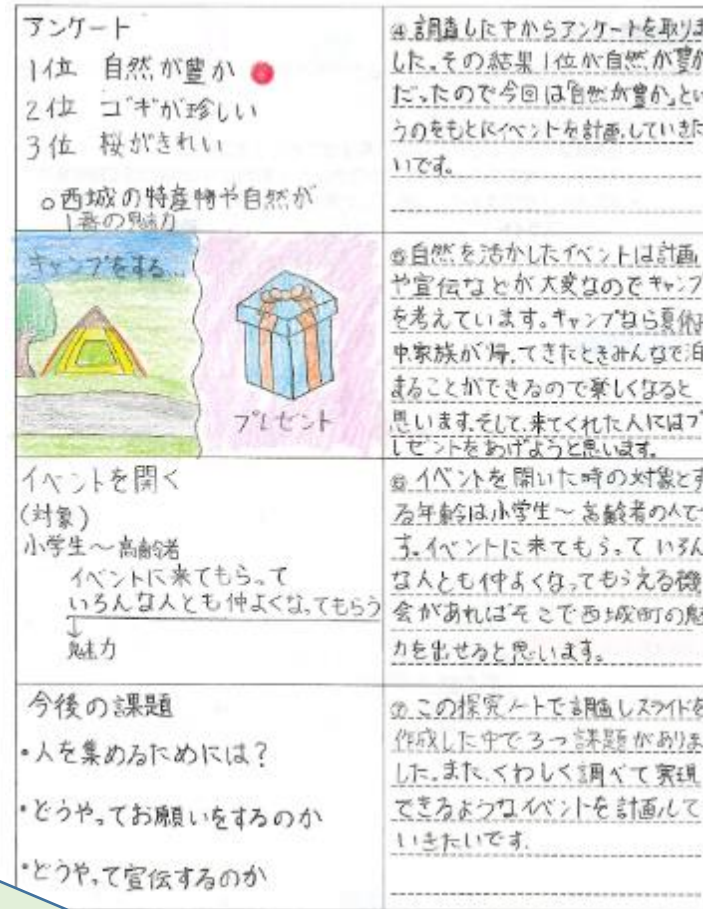 アンケート
1位 自然が豊か
2位 ゴギが珍しい
3位 桜がきれい
○西城の特産物や自然が
1番の魅力
④調査した中からアンケートを取りま
した。その結果1位が自然が豊か
だったので今回は「自然が豊か」とい
うのをもとにイベントを計画していきた
いです。
キャンプをする...
プレゼント
⑤自然を活かしたイベントは計画
や宣伝などが大変なのでキャンプ
を考えています。キャンプなら夏休み
中家族が帰ってきたときみんなで泊
まることができるので楽しくなると
思います。そして、来てくれた人にはプ
レゼントをあげようと思います。
イベントを開く
(対象)
小学生～高齢者
イベントに来てもらって
いろんな人とも仲よくなってもらう
↓
魅力
⑥イベントを開いた時の対象とす
る年齢は小学生～高齢者の人で
す。イベントに来てもらって いろん
な人とも仲よくなってもらえる機
会があればそこで西城町の魅
力を出せると思います。
今後の課題
・人を集めるためには?
・どうやってお願いをするのか
・どうやって宣伝するのか
⑦この探究ノートで調査しスライドを
作成した中で3つ課題がありま
した。また、くわしく調べて実現
できるようなイベントを計画して
いきたいです。